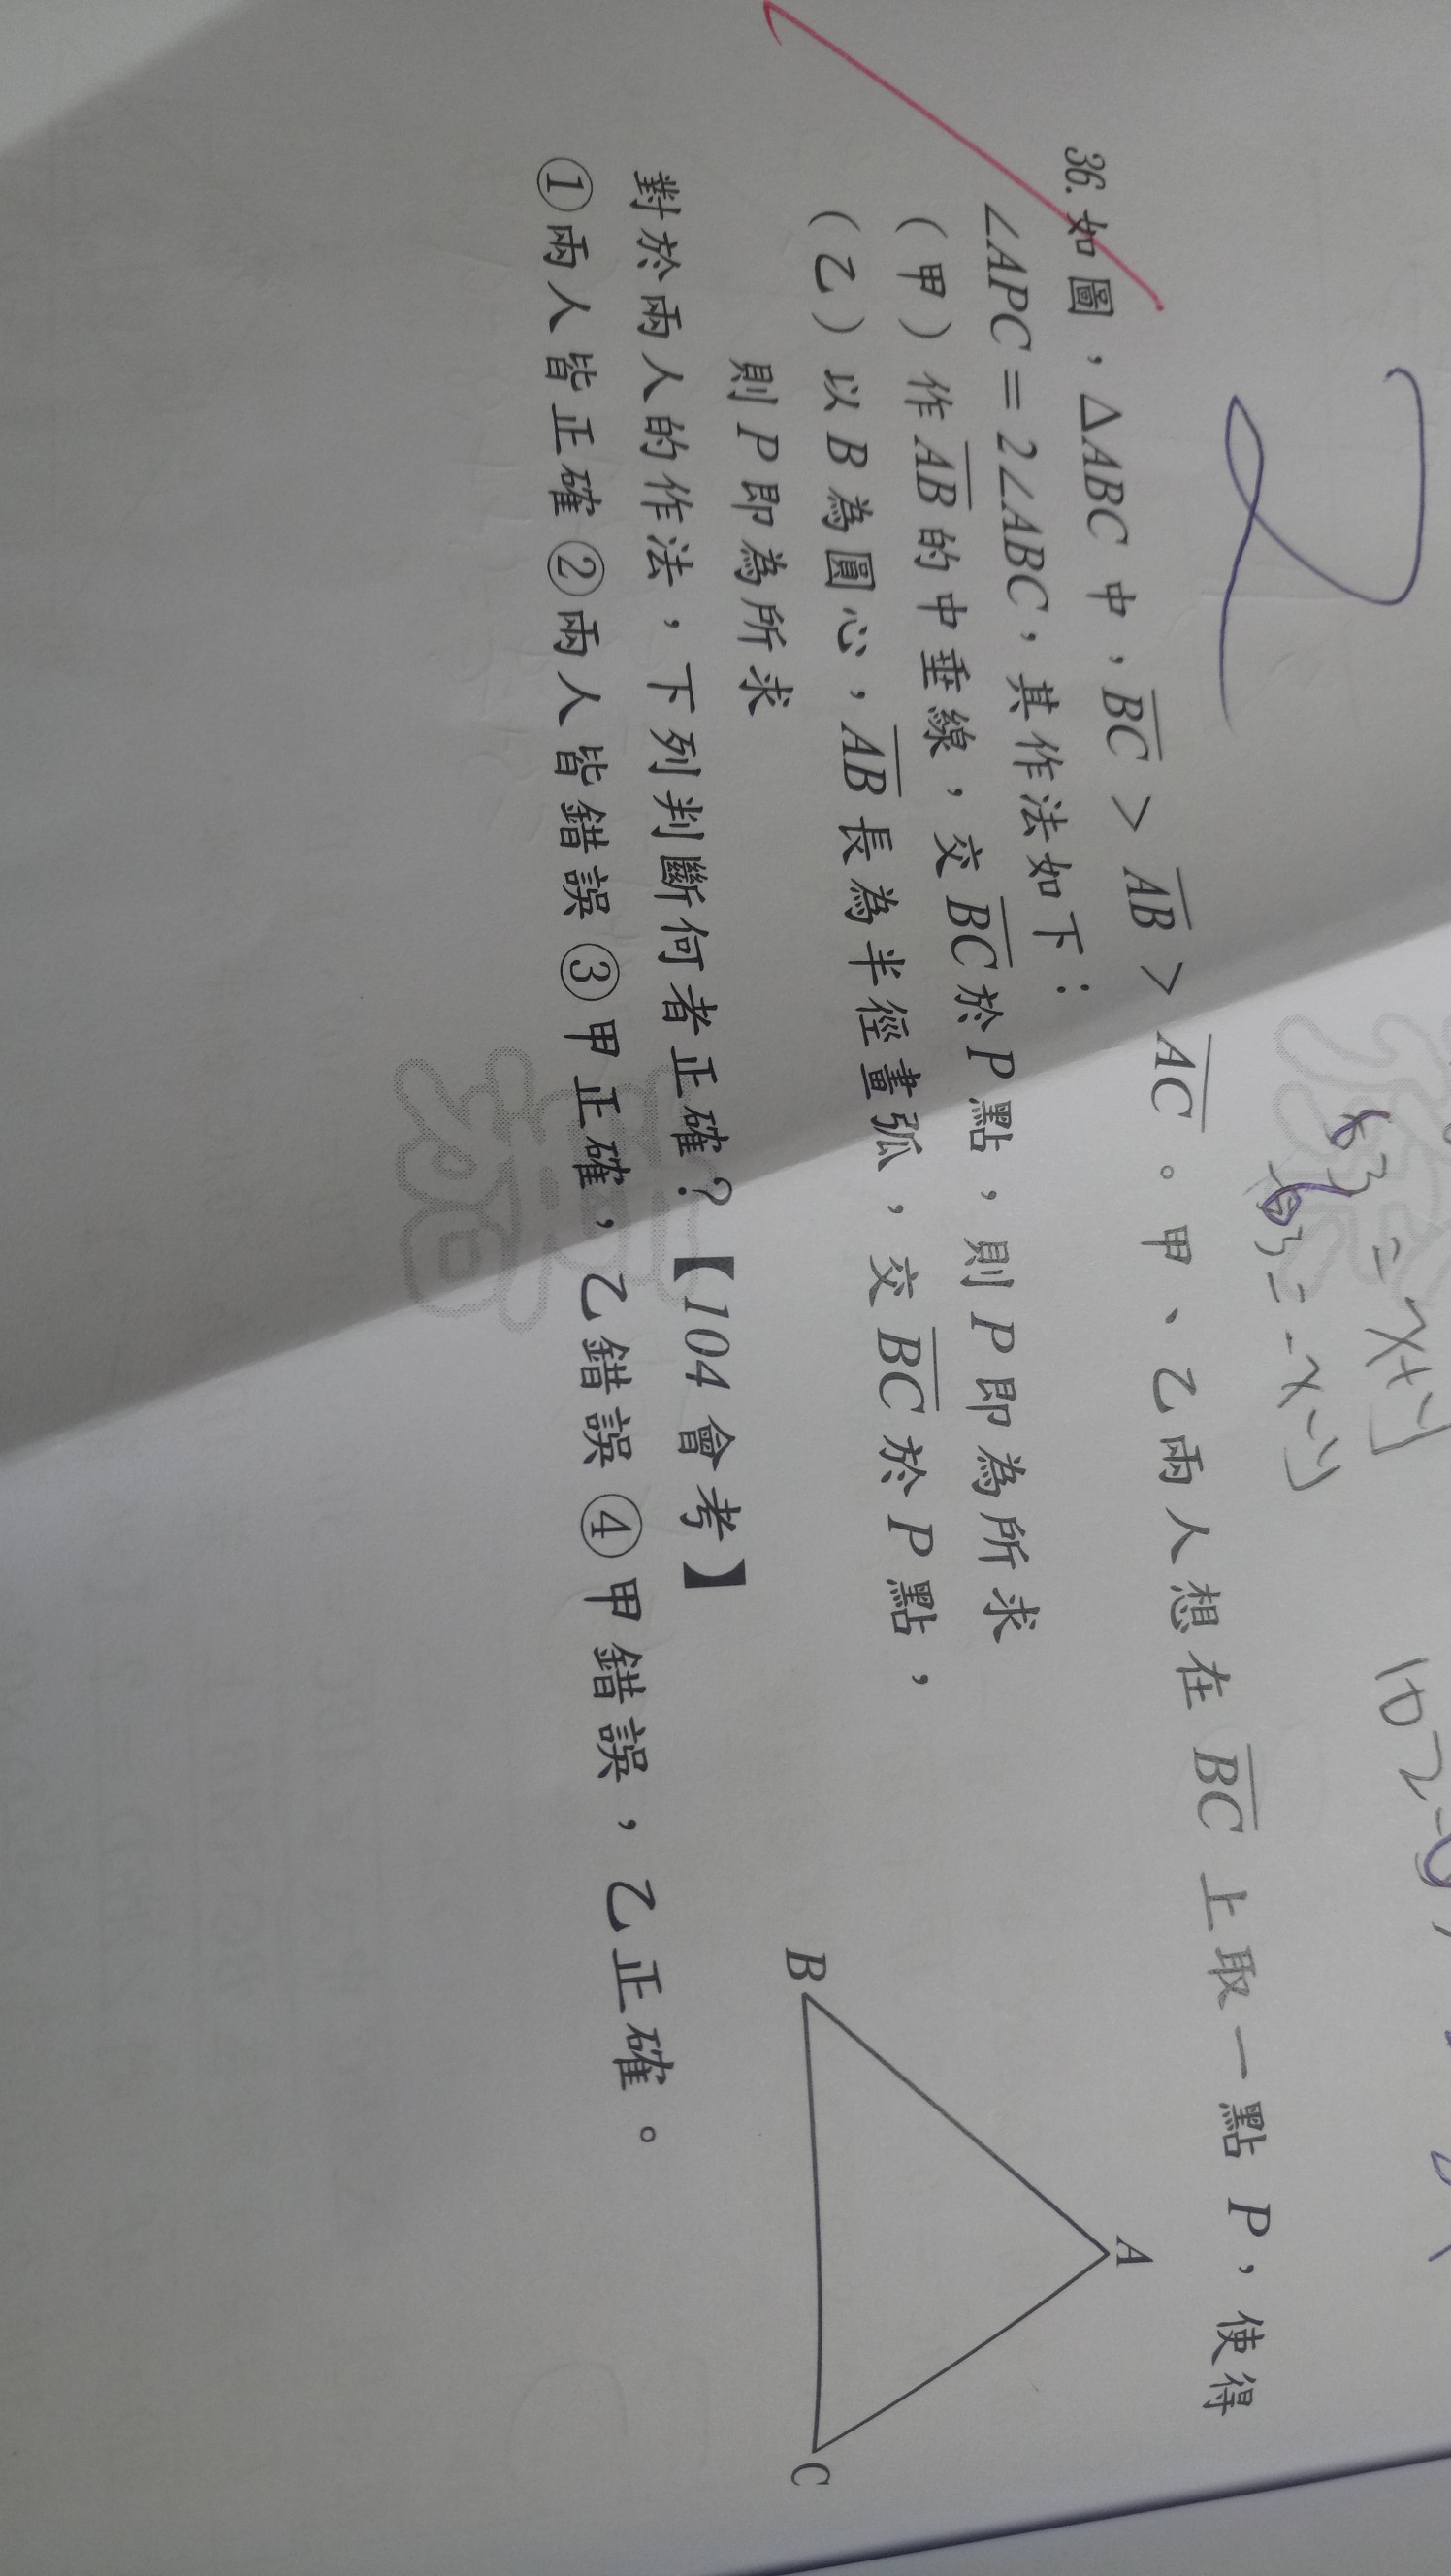 63 = x+y
63 = -x-y
2
36. 如圖，△ABC 中，BC > AB > AC。甲、乙兩人想在 BC 上取一點 P，使得
∠APC = 2∠ABC，其作法如下：
（甲）作 AB 的中垂線，交 BC 於 P 點，則 P 即為所求
（乙）以 B 為圓心，AB 長為半徑畫弧，交 BC 於 P 點，
則 P 即為所求
對於兩人的作法，下列判斷何者正確？【104 會考】
①兩人皆正確 ②兩人皆錯誤 ③甲正確，乙錯誤 ④甲錯誤，乙正確。
A
B
C